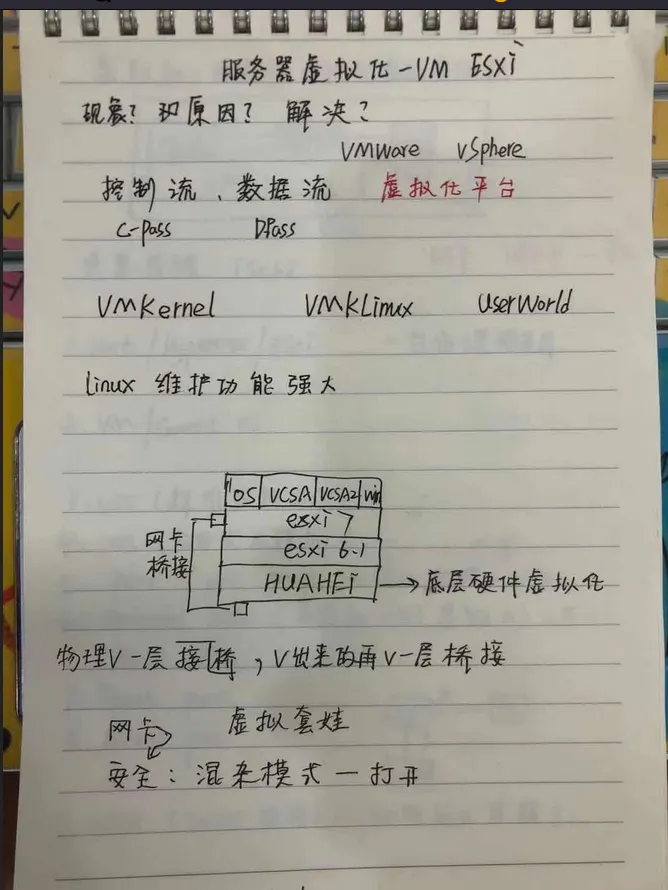 服务器虚拟化-VM ESXi
现象? 和原因? 解决?
VMWare vSphere
控制流、数据流 虚拟化平台
C-pass DPass
VMKernel VMKLinux UserWorld
Linux 维护功能强大
OS VCSA VCSA2 win
esxi 7
网卡
桥接
esxi 6.1
HUAHEi → 底层硬件虚拟化
物理V一层接桥，V出来的再V一层桥接
网卡 虚拟套娃
安全：混杂模式一打开